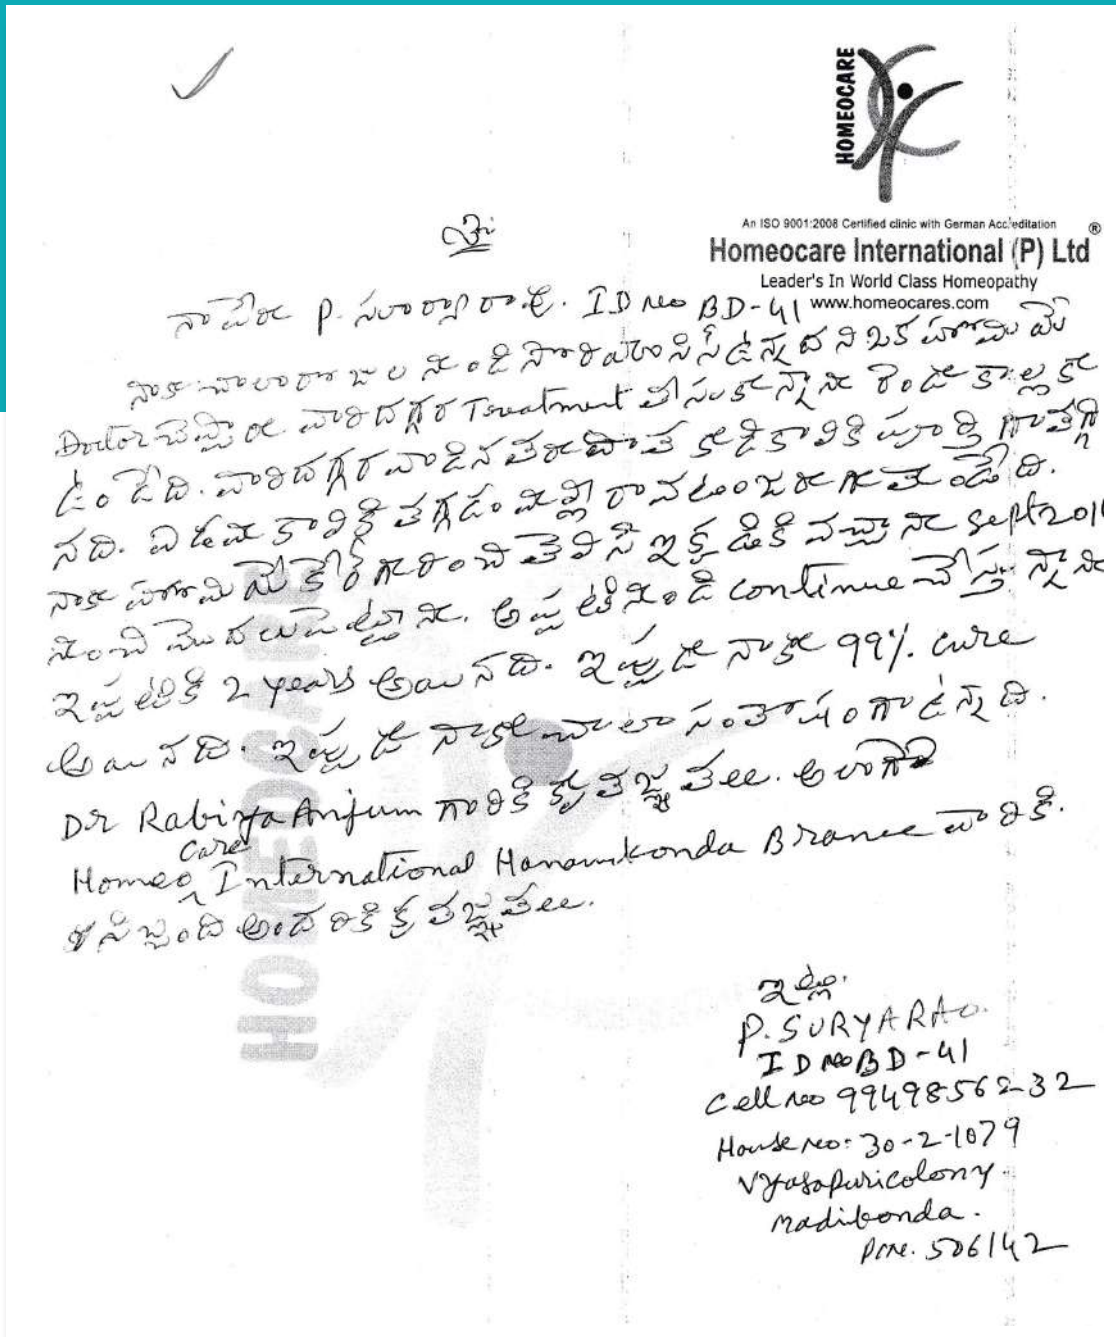 HOMEOCARE
An ISO 9001:2008 Certified clinic with German Accreditation ®
Homeocare International (P) Ltd
Leader's In World Class Homeopathy
www.homeocares.com
శ్రీ
నా పేరు P. సూర్యారావు. ID No BD-41
నాకు చాలా రోజుల నుండి సొరియాసిస్ ఉన్నదని ఒక హోమియో
Doctor చెప్పారు వారి దగ్గర Treatment తీసుకున్నాను రెండు కాల్లకు
ఉండేది. వారి దగ్గర వాడిన తరువాత కుడికాలికి పూర్తిగా తగ్గి
నది. ఎడమ కాలికి తగ్గడం మళ్లీ రావటం జరుగుతుండేది.
నాకు హోమియో కేర్ గురించి తెలిసి ఇక్కడికి వచ్చాను Sept 201
నుంచి మొదలు పెట్టాను. అప్పటినుండి continue చేస్తున్నాను
ఇప్పటికి 2 years అయినది. ఇప్పుడు నాకు 99% cure
అయినది. ఇప్పుడు నాకు చాలా సంతోషంగా ఉన్నది.
Dr Rabiya Anjum గారికి కృతజ్ఞతలు. అలాగే
Homeo Care International Hanamkonda Brance వారికి.
సిబ్బంది అందరికి కృతజ్ఞతలు.
HOMEOCARE
ఇట్లు.
P. SURYARAO.
ID No BD-41
Cell no 9949856232
House no: 30-2-1079
Vyasapuricolony
Madikonda.
Pine. 506142